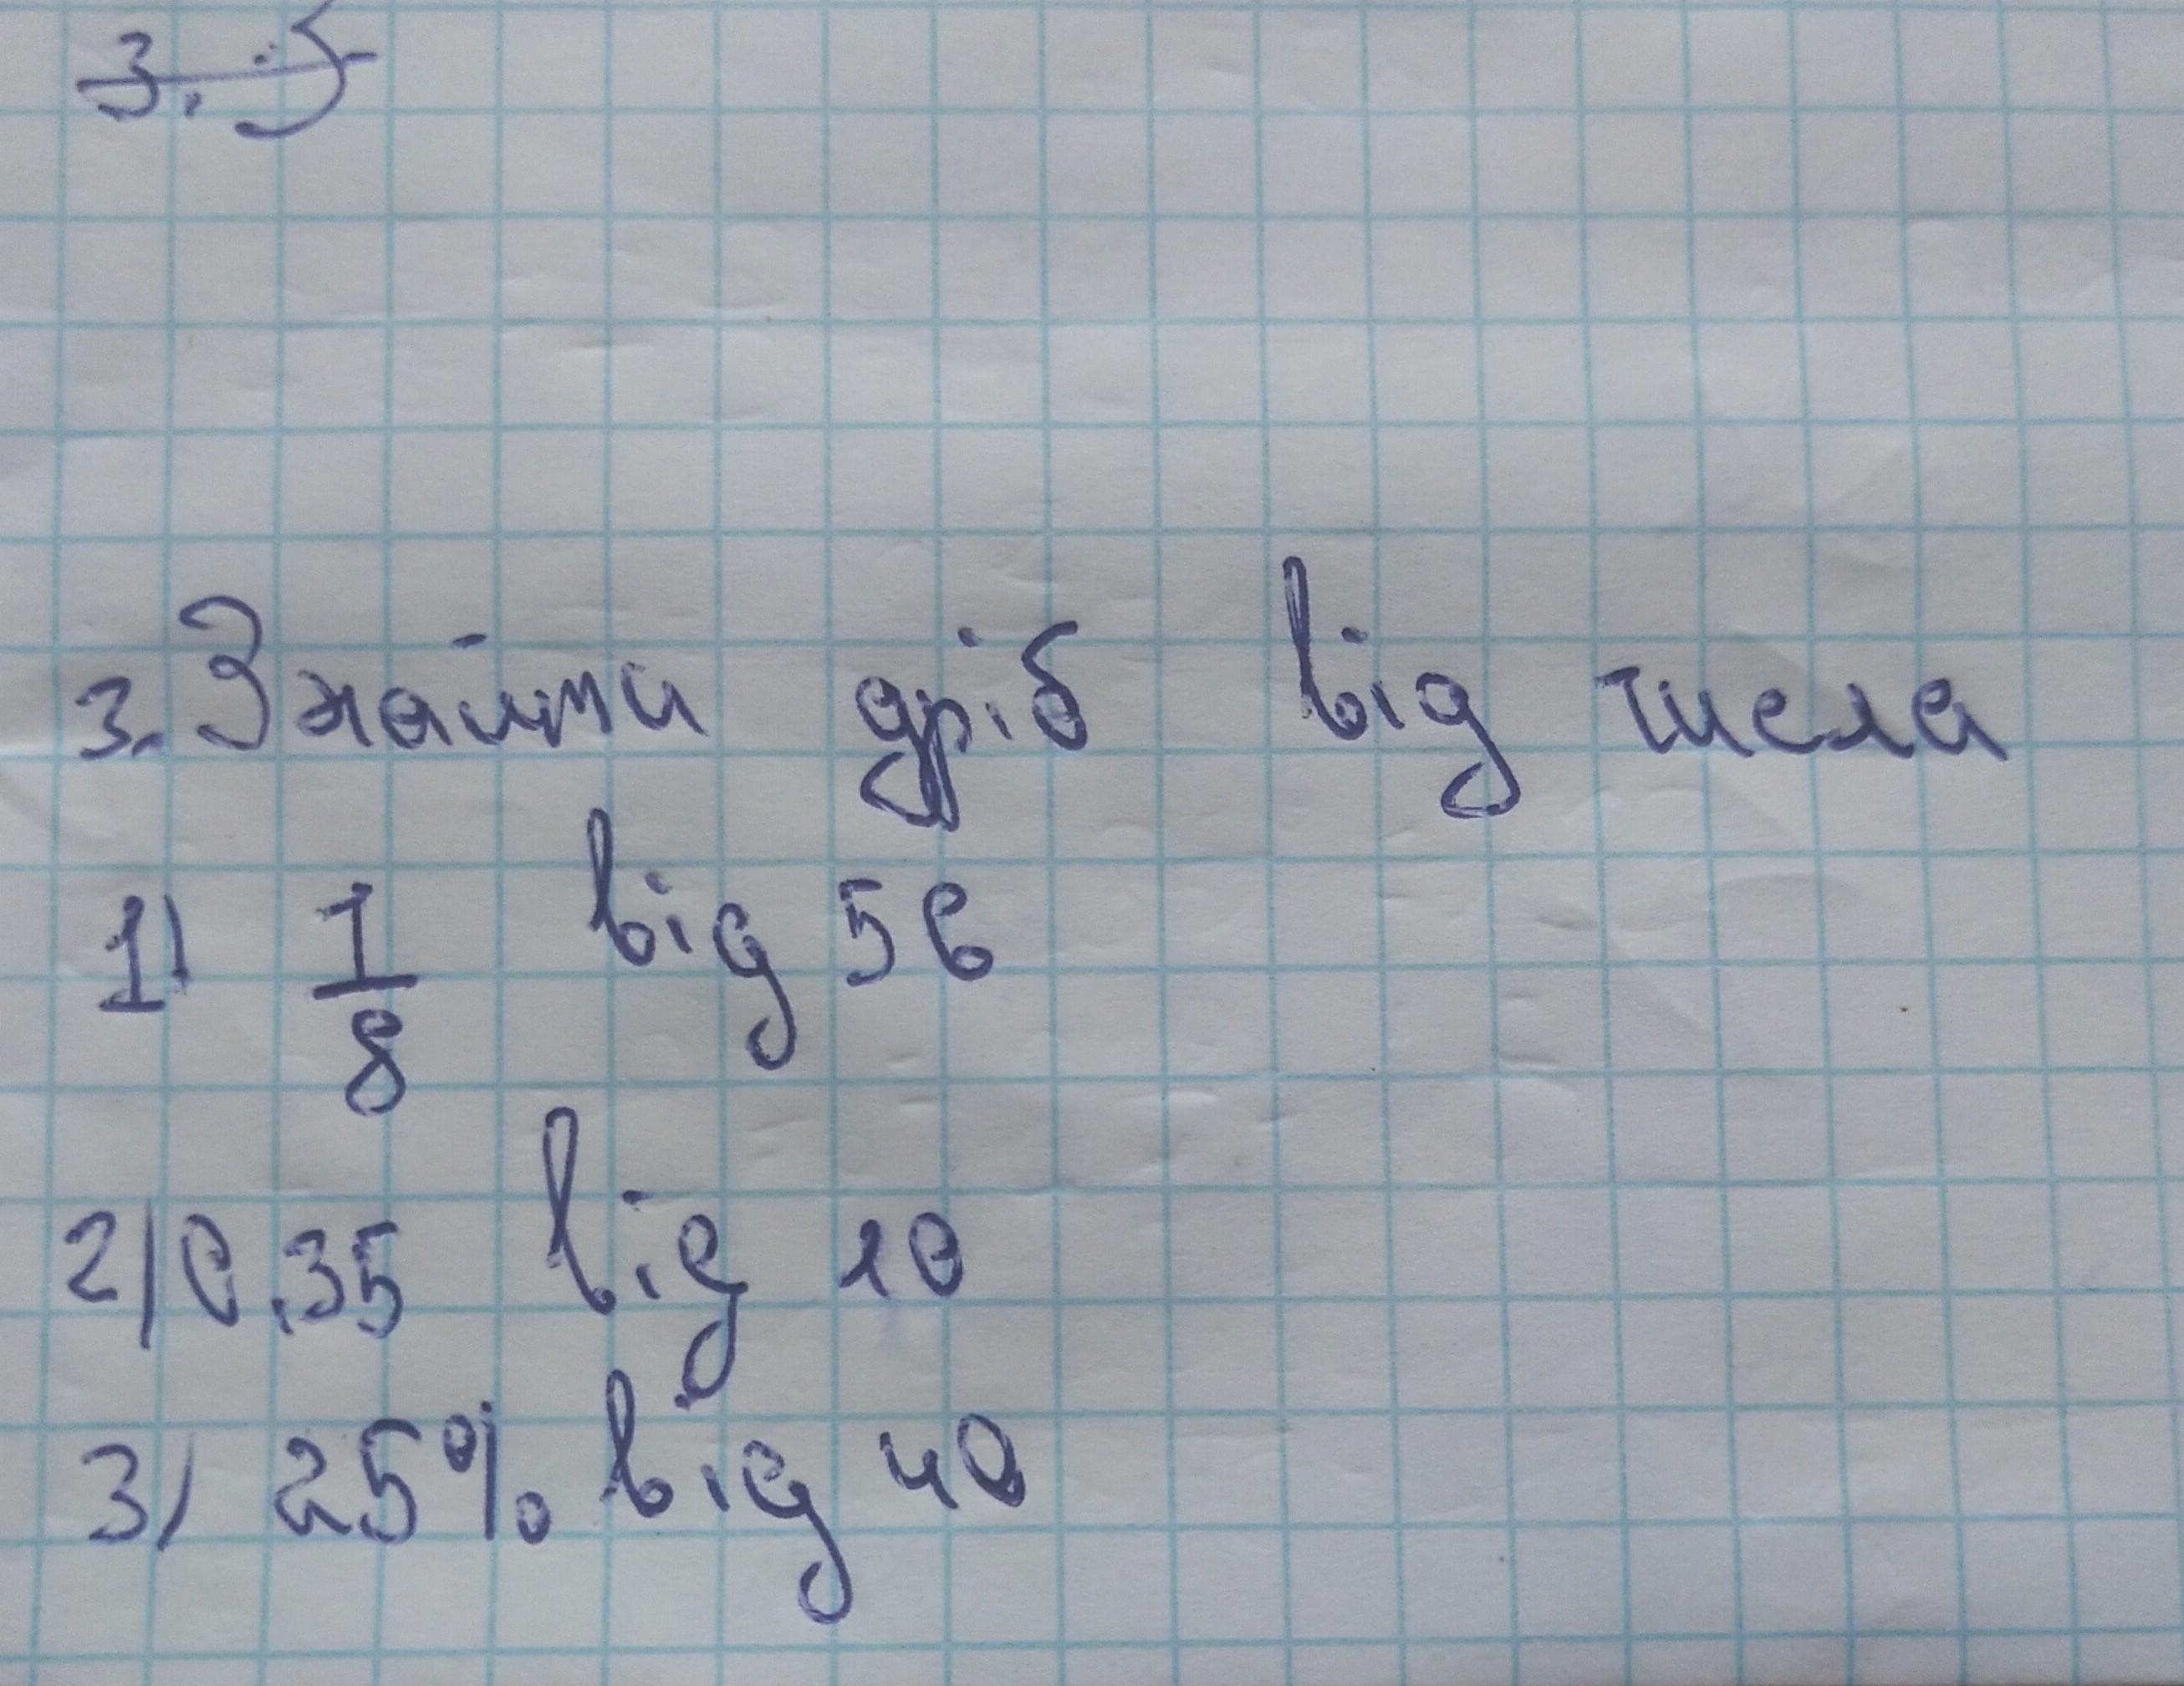 3. Знайти дріб від числа
1) 1/8 від 56
2) 0,35 від 10
3) 25% від 40